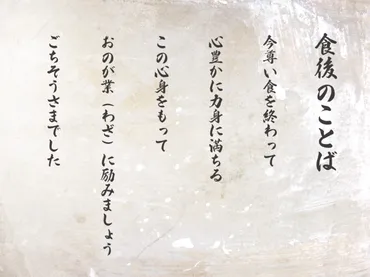 食後のことば
今尊い食を終わって
心豊かに力身に満ちる
この心身をもって
おのが業（わざ）に励みましょう
ごちそうさまでした